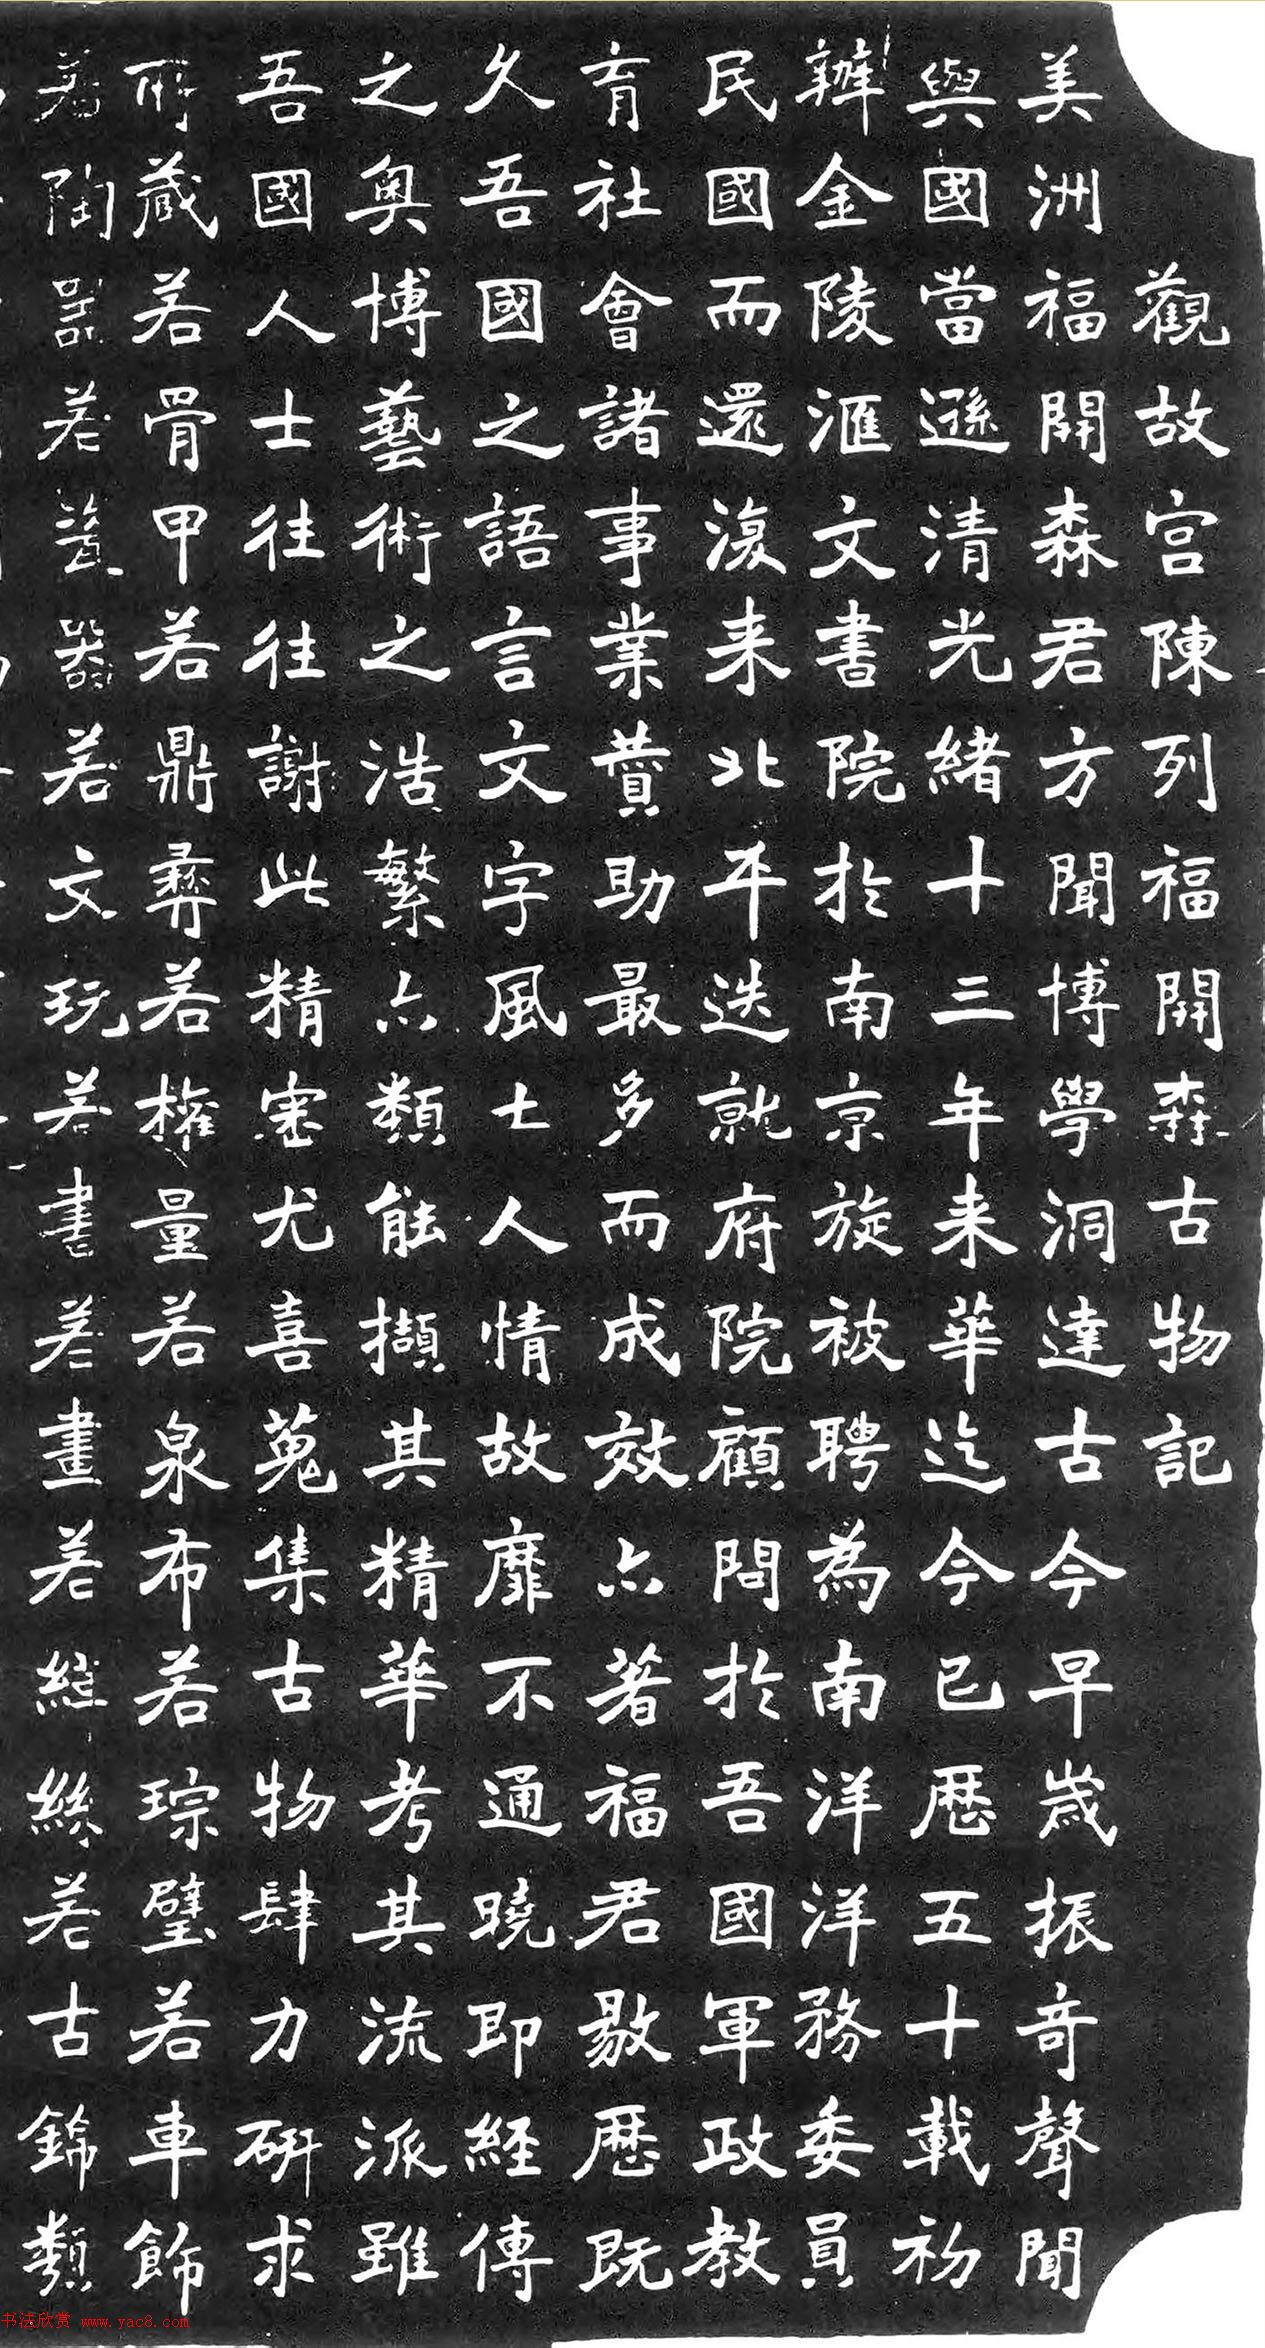 觀故宮陳列福開森古物記
美洲福開森君方聞博學洞達古今早歲振奇聲聞
與國當遜清光緒十三年来華迄今已歷五十載初
辦金陵滙文書院於南京旋被聘為南洋洋務委員
民國而還復来北平迭就府院顧問於吾國軍政教
育社會諸事業贊助最多而成效亦著福君敭歷既
久吾國之語言文字風土人情故靡不通曉即經傳
之奧博藝術之浩繁亦類能擷其精華考其流派雖
吾國人士往往謝此精密尤喜蒐集古物肆力研求
所藏若骨甲若鼎彝若權量若泉布若琮璧若車飾
若陶器若瓷器若文玩若書若畫若緙絲若古錦類
书法欣赏 www.yac8.com